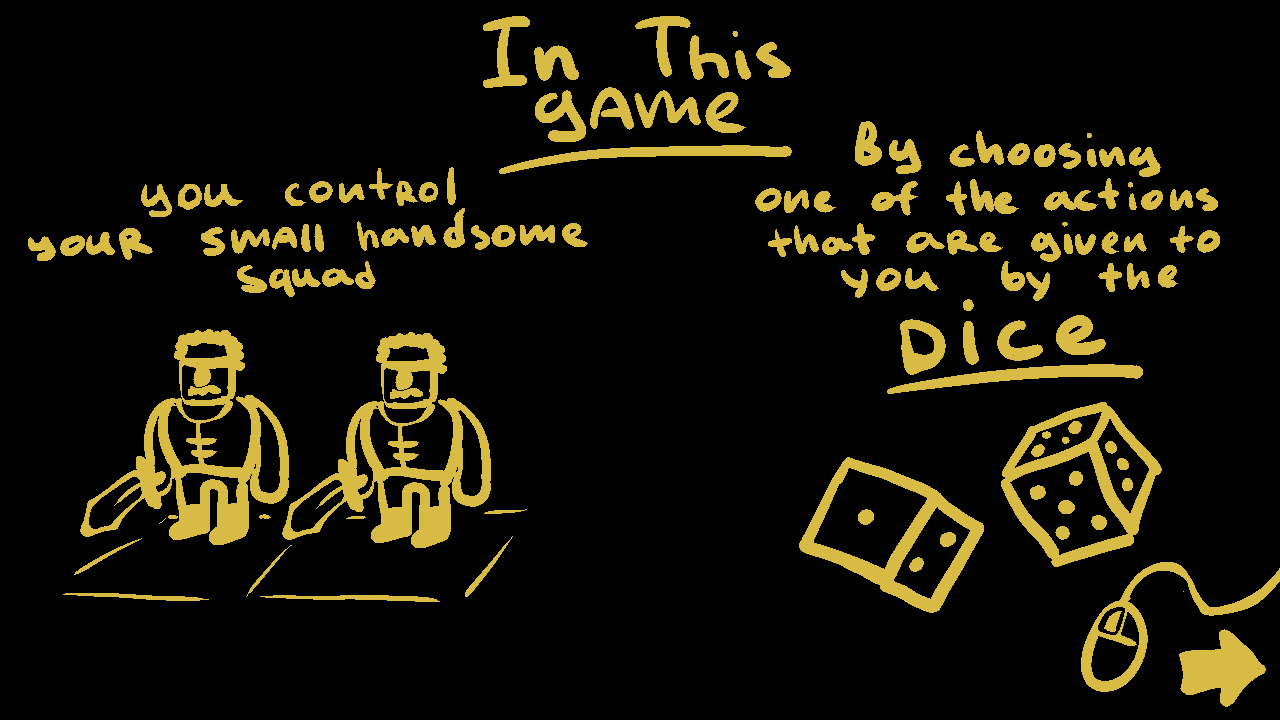 In This
game
you control
your small handsome
squad
By choosing
one of the actions
that are given to
you by the
Dice